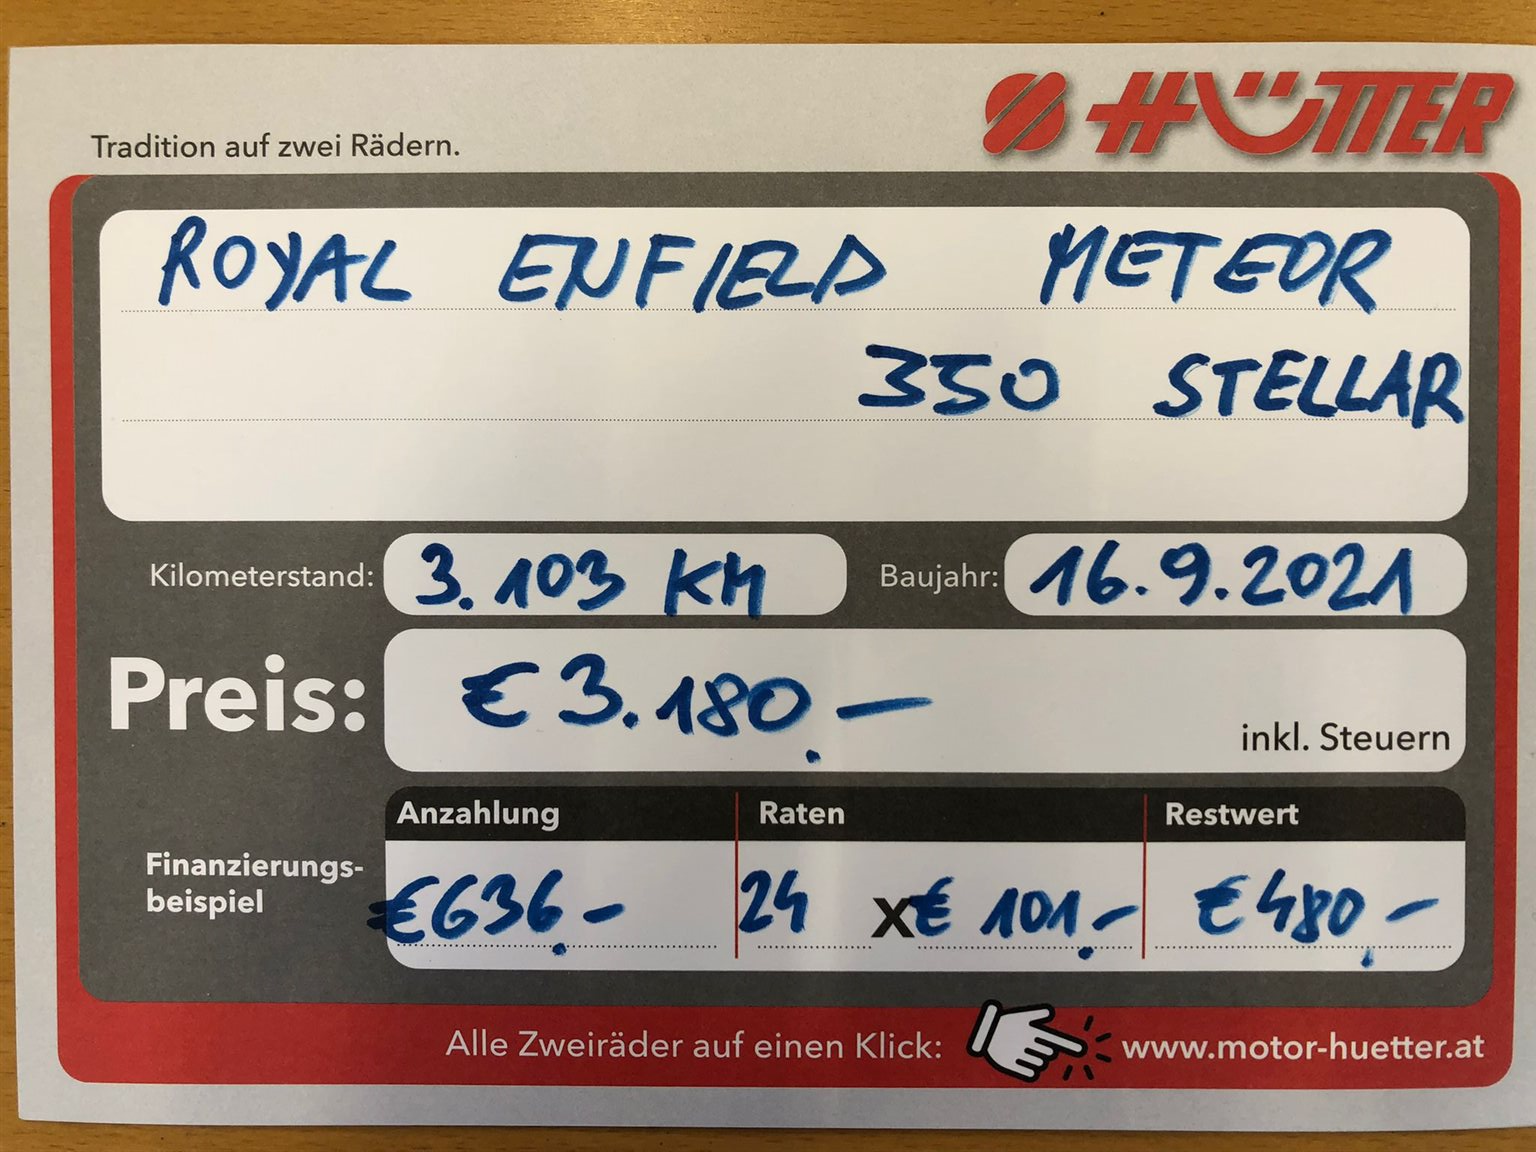 HÜTTER
Tradition auf zwei Rädern.
ROYAL ENFIELD METEOR
350 STELLAR
Kilometerstand: 3.103 KM Baujahr: 16.9.2021
Preis: € 3.180,-
inkl. Steuern
Anzahlung Raten Restwert
Finanzierungs-
beispiel
€636,- 24 x € 101,- €480,-
Alle Zweiräder auf einen Klick: www.motor-huetter.at